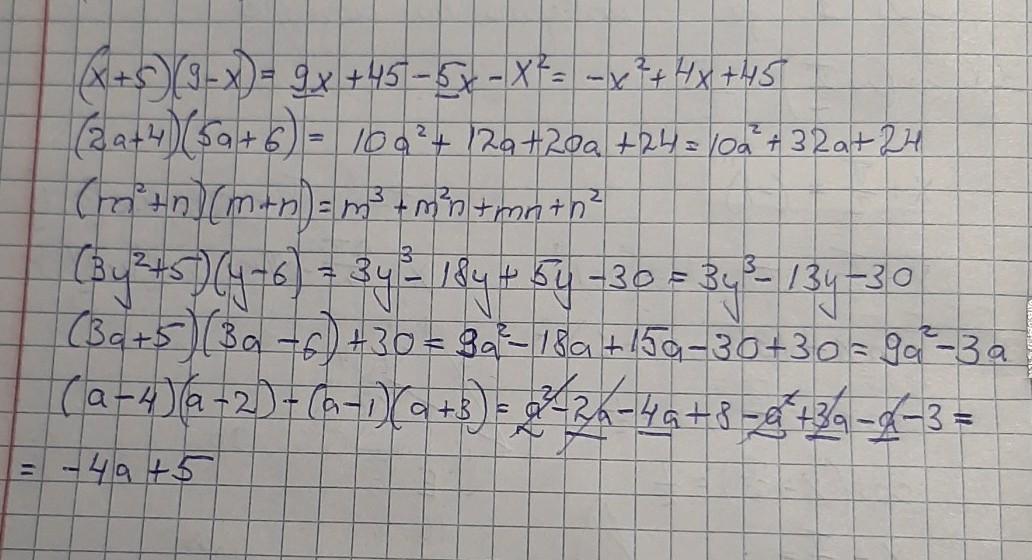 (x+5)(9-x)= 9x+45-5x-x²= -x²+4x+45
(2a+4)(5a+6)= 10a²+12a+20a+24=10a²+32a+24
(m²+n)(m+n)=m³+m²n+mn+n²
(3y²+5)(y-6) = 3y³-18y+5y-30=3y³-13y-30
(3a+5)(3a-6)+30=9a²-18a+15a-30+30=9a²-3a
(a-4)(a-2)-(a-1)(a+3)=a²-2a-4a+8-a²+3a-a-3=
= -4a+5